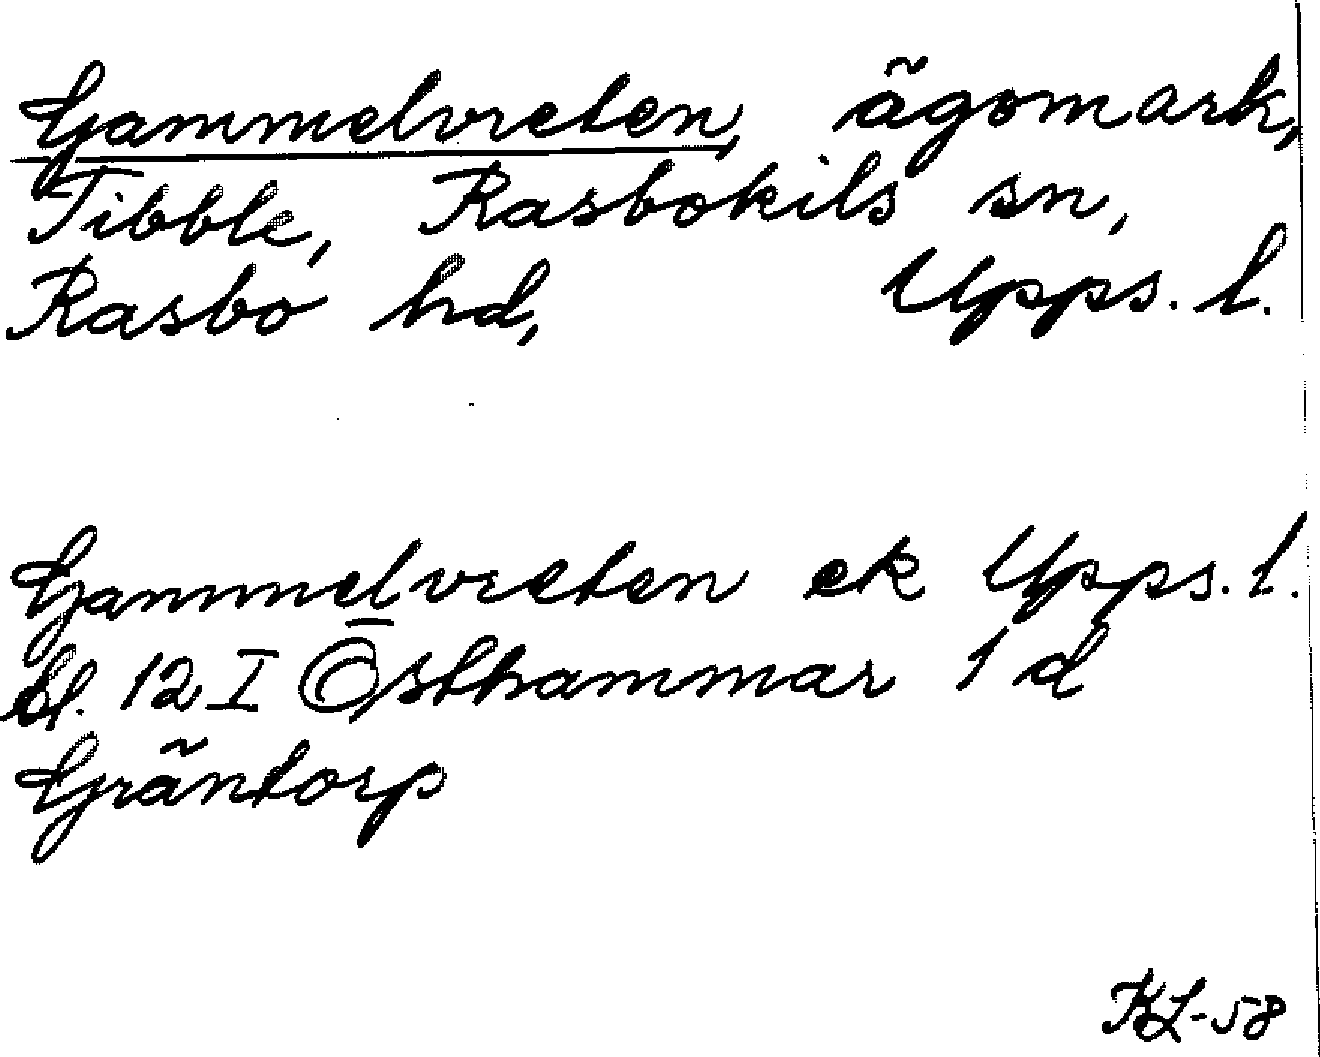 Gammelvreten, ägomark,
Tibble, Rasbokils sn,
Rasbo hd, Upps. l.
Gammelvreten ek Upps. l.
bl. 12 I Östhammar 1 d
Gräntorp
KL-58